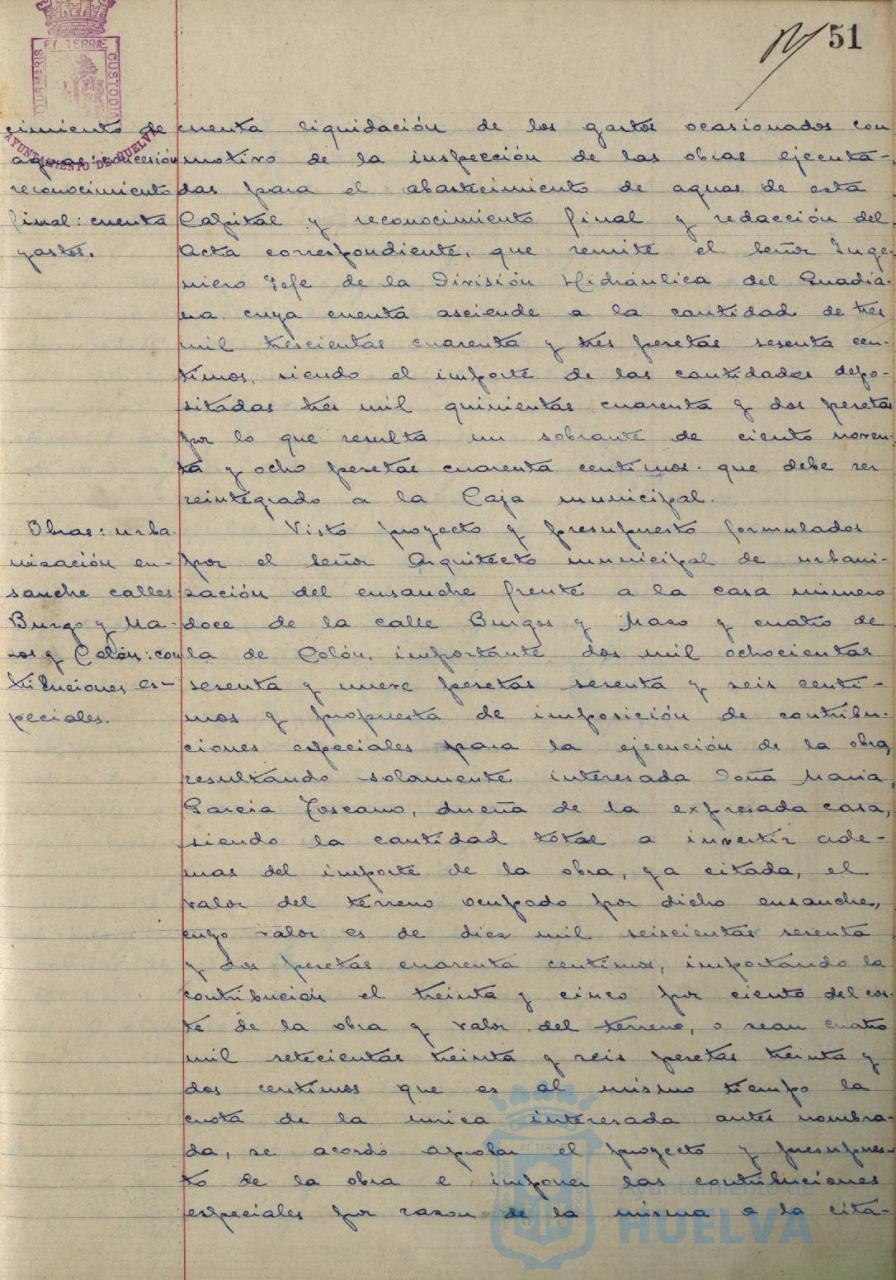 51
PORTUS MARIS ET TERRÆ CUSTODIA
AYUNTAMIENTO DE HUELVA
cimiento de
aguas: concesión
reconocimiento
final: cuenta
gastos.
cuenta liquidación de los gastos ocasionados con
motivo de la inspección de las obras ejecuta-
das para el abastecimiento de aguas de esta
Capital y reconocimiento final y redacción del
Acta correspondiente, que remite el señor Inge-
niero Jefe de la División Hidráulica del Guadia-
na cuya cuenta asciende a la cantidad de tres
mil trescientas cuarenta y tres pesetas sesenta cen-
timos, siendo el importe de las cantidades depo-
sitadas tres mil quinientas cuarenta y dos pesetas
por lo que resulta un sobrante de ciento noven-
ta y ocho pesetas cuarenta centimos que debe ser
reintegrado a la Caja municipal.
Obras: urba
nización en-
sanche calles
Burgo y Ma-
sos y Colón: con
tribuciones es-
peciales.
Visto proyecto y presupuesto formulados
por el señor Arquitecto municipal de urbani-
zación del ensanche frente a la casa número
doce de la calle Burgos y Maso y cuatro de
la de Colón, importante dos mil ochocientas
sesenta y nueve pesetas sesenta y seis centi-
mos y propuesta de imposición de contribu-
ciones especiales para la ejecución de la obra,
resultando solamente interesada Doña Maria
Garcia Toscano, dueña de la expresada casa,
siendo la cantidad total a invertir ade-
mas del importe de la obra, ya citada, el
valor del terreno ocupado por dicho ensanche,
cuyo valor es de diez mil seiscientas sesenta
y dos pesetas cuarenta centimos, importando la
contribución el treinta y cinco por ciento del cos-
te de la obra y valor del terreno, o sean cuatro
mil setecientas treinta y seis pesetas treinta y
dos centimos que es al mismo tiempo la
cuota de la unica interesada antes nombra-
da, se acordo aprobar el proyecto y presupues-
to de la obra e imponer las contribuciones
especiales por razon de la misma a la cita-
Ayuntamiento de
HUELVA